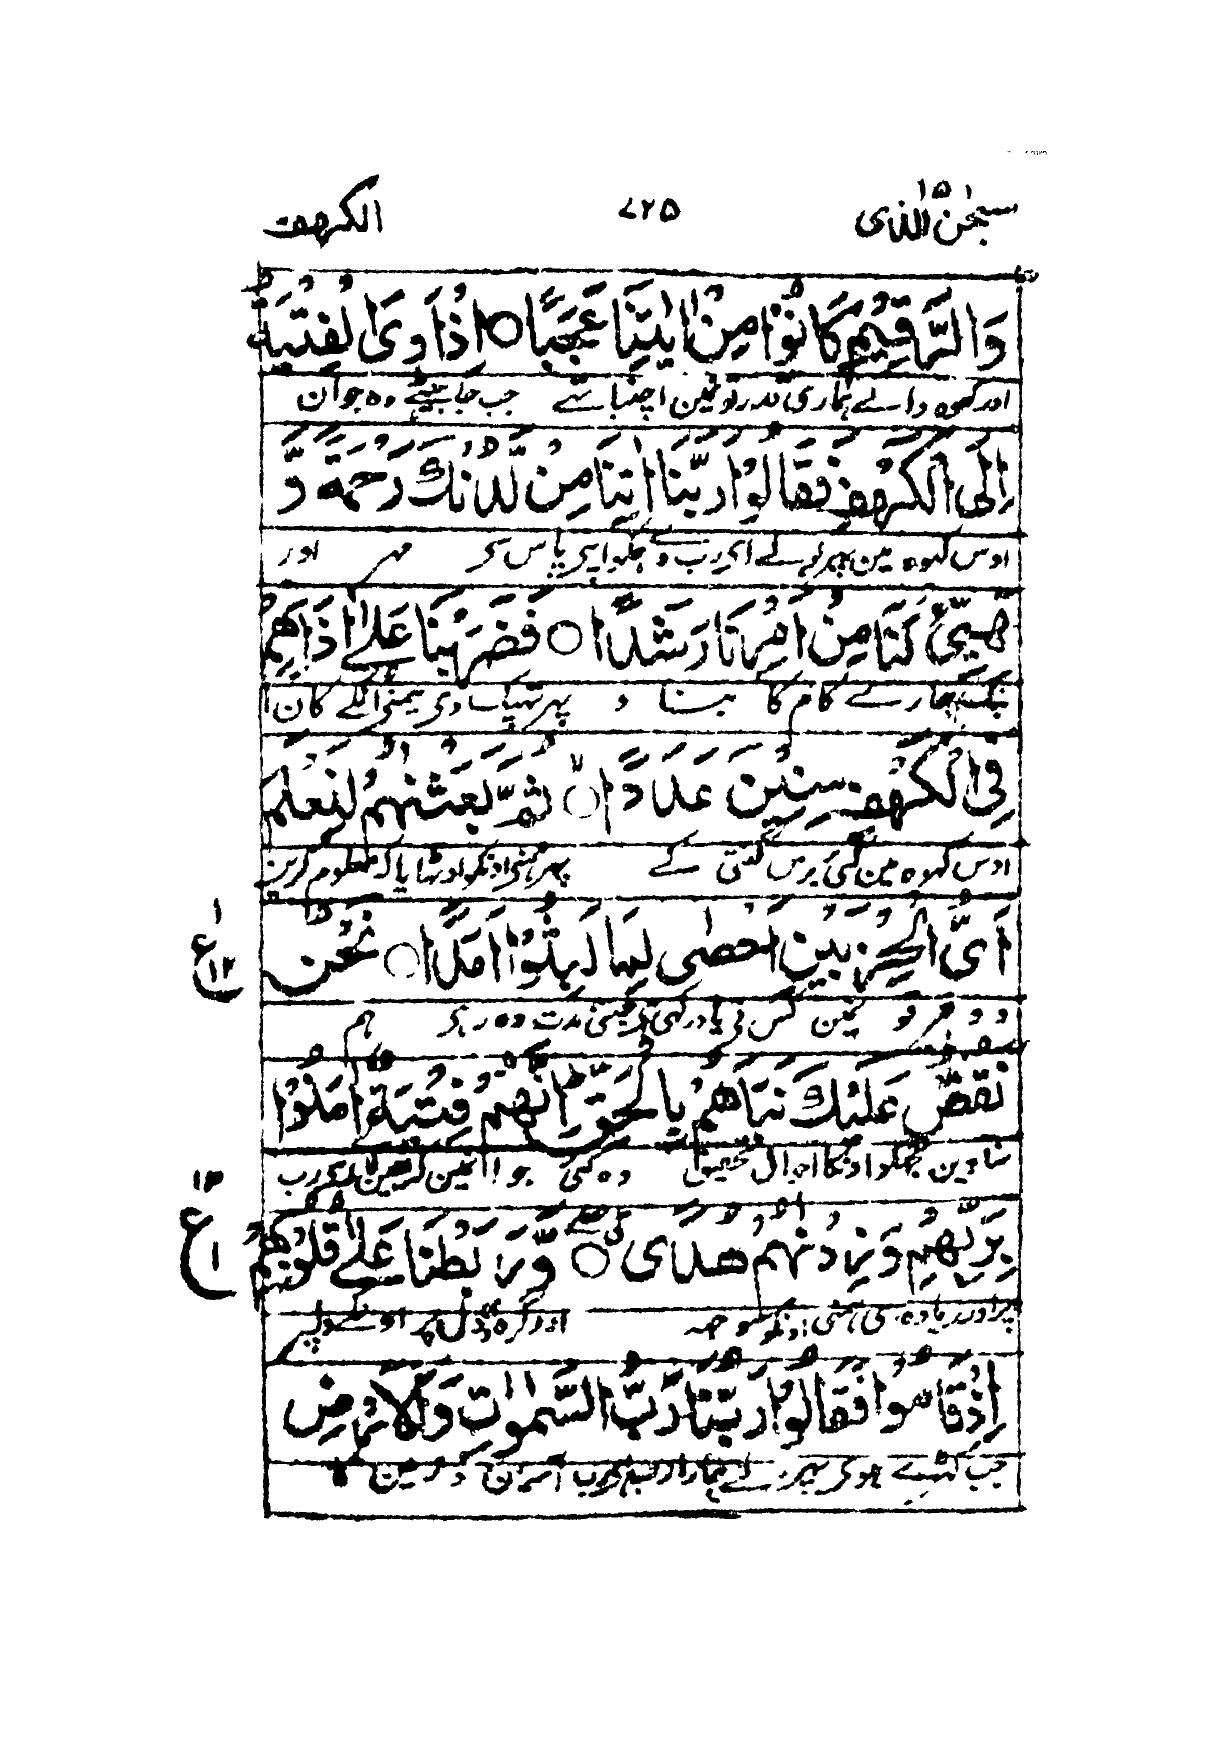 سبحٰن الذی ١٥ ٤٢٥ الکهف
وَالرَّقِيْمِ كَانُوْا مِنْ اٰيٰتِنَا عَجَبًا ○ اِذْ اَوَى الْفِتْيَةُ
اور کھوہ والے ہماری قدرتونمین اچنبا تھے جب جا بیٹھے وہ جوان
اِلَى الْكَهْفِ فَقَالُوْا رَبَّنَا اٰتِنَا مِنْ لَّدُنْكَ رَحْمَةً وَّ
اوس کھوہ مین پھر بولے ای رب دے ہمکو اپنی پاس سی مہر اور
هَيِّئْ لَنَا مِنْ اَمْرِنَا رَشَدًا ○ فَضَرَبْنَا عَلٰٓى اٰذَانِهِمْ
ہمارے کام کا بنا و پھر تھپک دی ہمنی اونکے کان
فِى الْكَهْفِ سِنِيْنَ عَدَدًا ○ ثُمَّ بَعَثْنٰهُمْ لِنَعْلَمَ
اوس کھوہ مین کئی برس گنتی کے پھر ہمنی اونکو اوٹھایا کہ معلوم کرین
اَىُّ الْحِزْبَيْنِ اَحْصٰى لِمَا لَبِثُوْٓا اَمَدًا ○ نَحْنُ
١ ع ١٣
دو فرقو نمین کس نی یاد رکھی ہی جتنی مدت وہ رہی ہم
نَقُصُّ عَلَيْكَ نَبَاَهُمْ بِالْحَقِّ اِنَّهُمْ فِتْيَةٌ اٰمَنُوْا
سنادین تجھکو اونکا احوال تحقیق وہ کئی جوان
١٣ ع ١
بِرَبِّهِمْ وَزِدْنٰهُمْ هُدًى ○ وَّرَبَطْنَا عَلٰى قُلُوْبِهِمْ
اور زیادہ دی ہمنی اونکو سوجھ اور گرہ دی اونکے دلپر
اِذْ قَامُوْا فَقَالُوْا رَبُّنَا رَبُّ السَّمٰوٰتِ وَالْاَرْضِ
جب کھڑے ہوئی پھر بولے ہمارا رب ہی رب آسمان و زمین کا